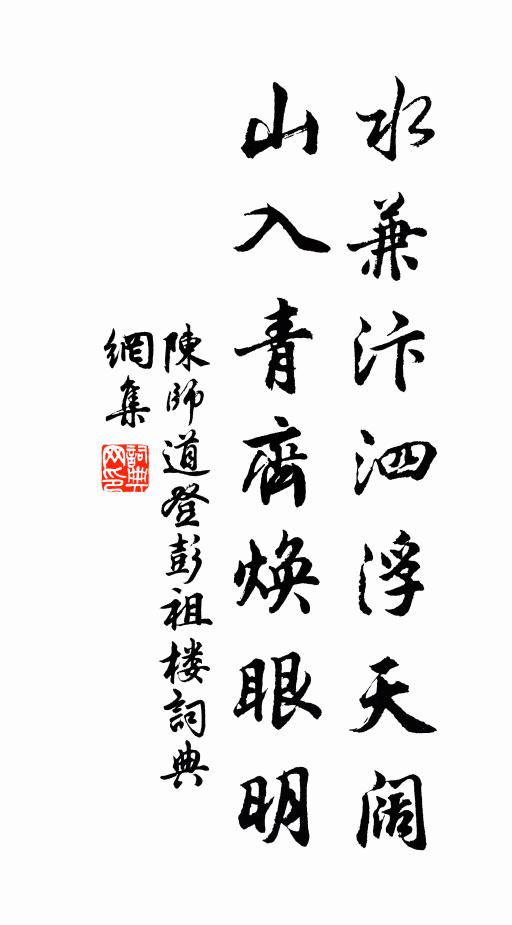 水兼汴泗浮天阔
山入青齊焕眼明
陳師道登彭祖楼詞典
網集
詞典
网印